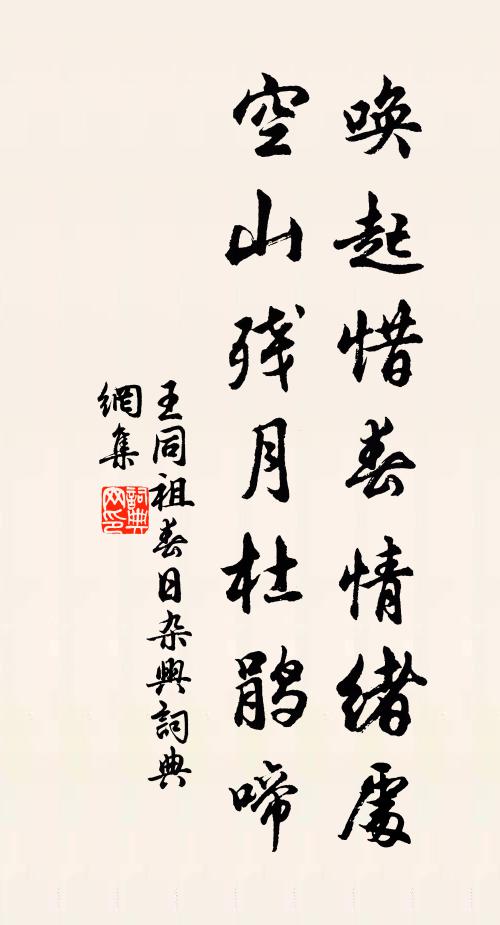 唤起惜春情绪处
空山残月杜鹃啼
王同祖春日杂興詞典
網集
詞典
网印